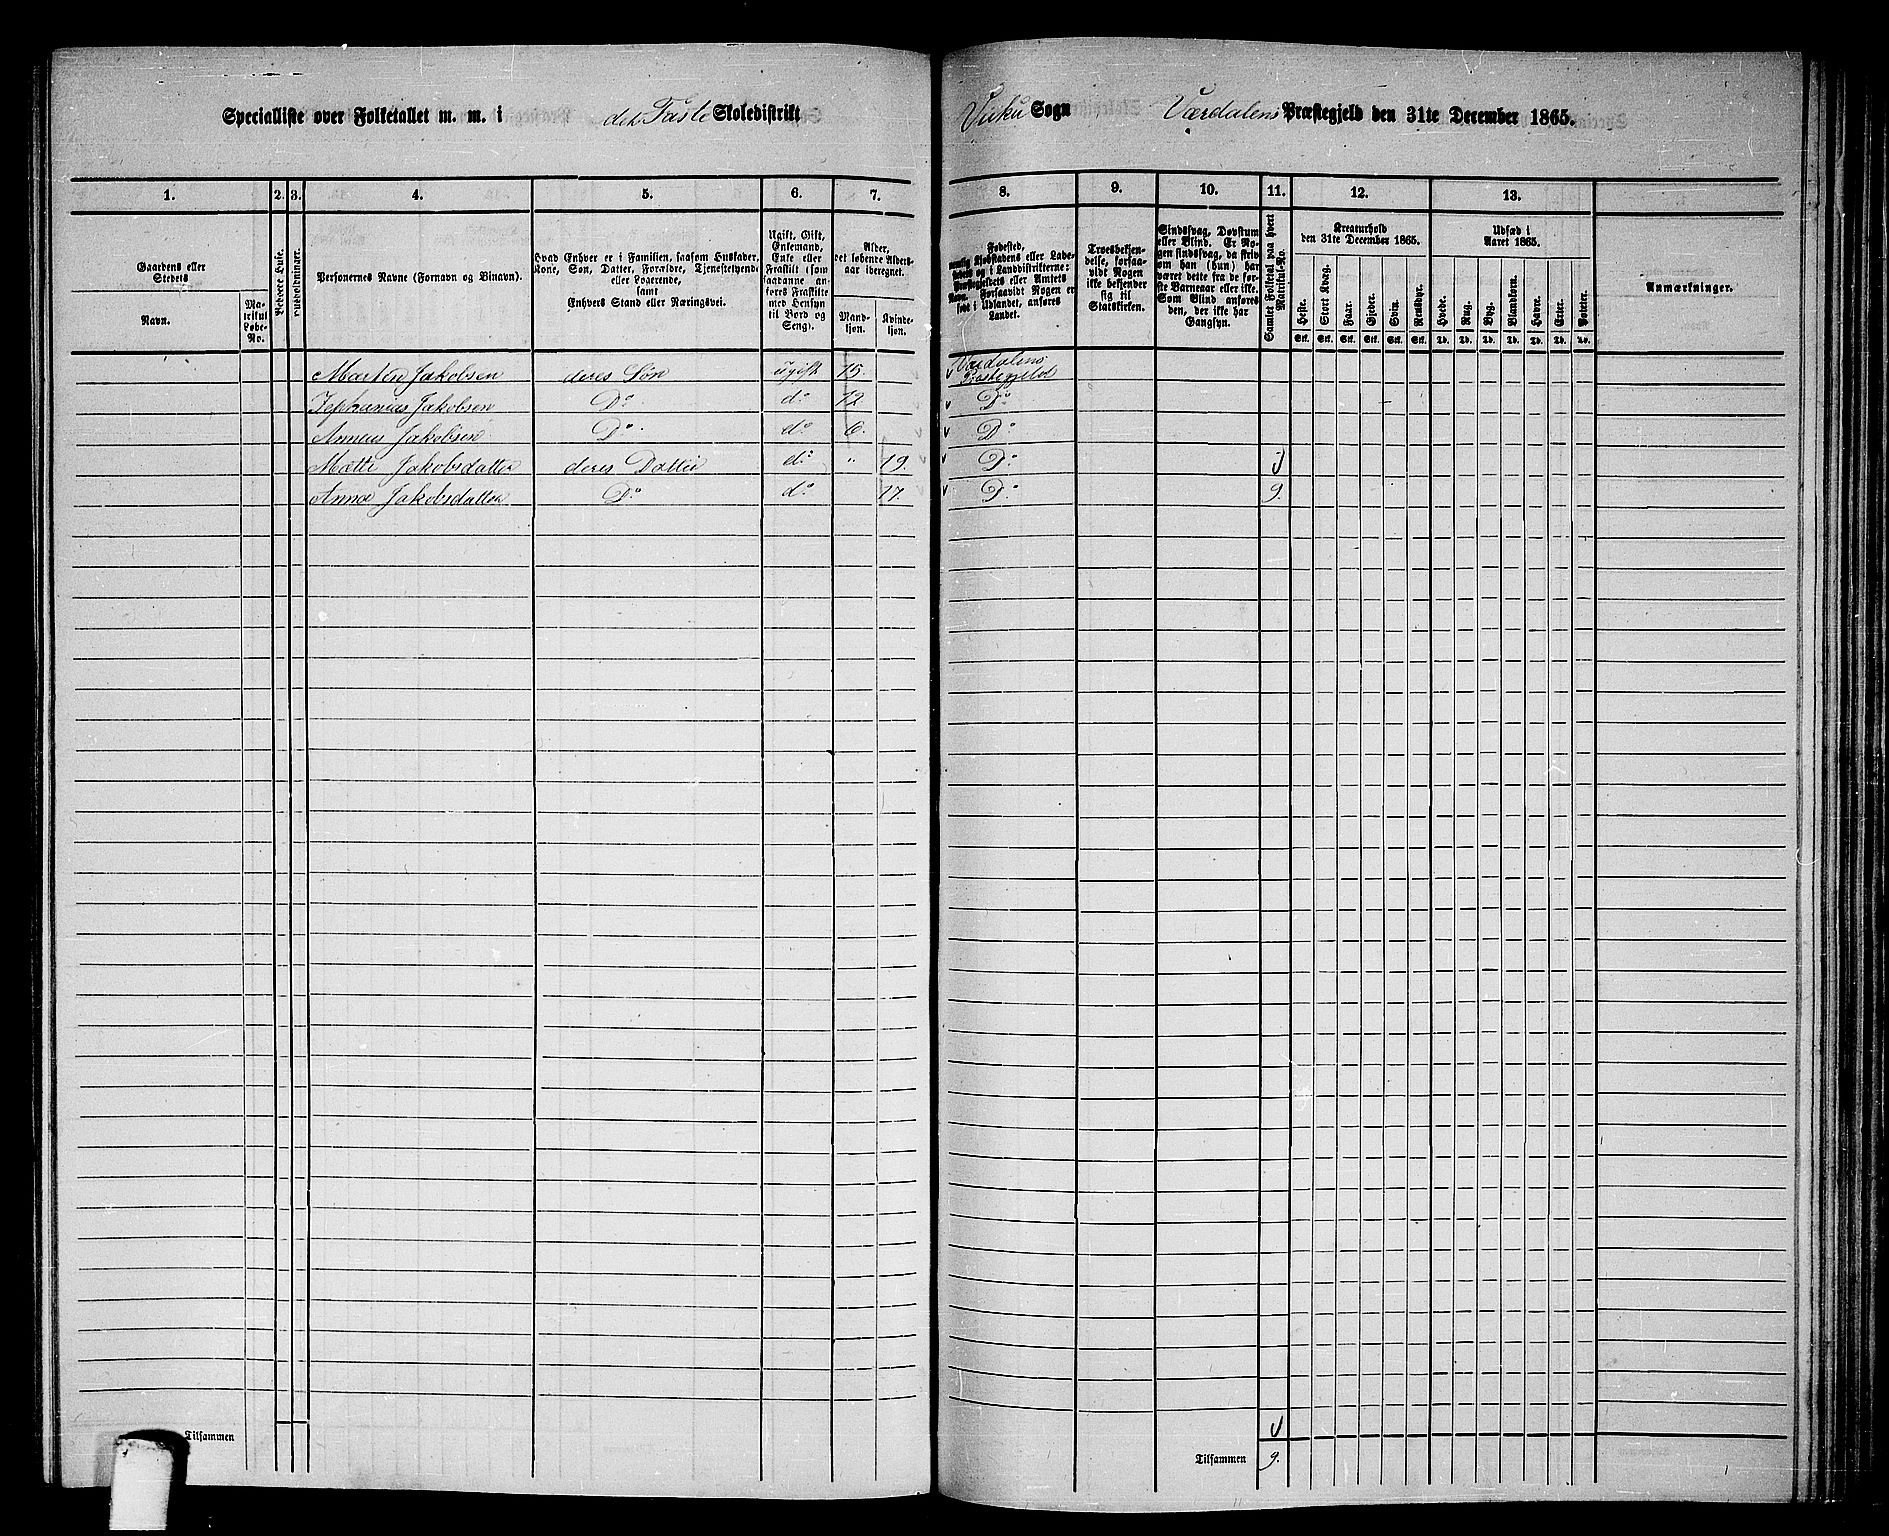 Specialliste over Folketallet m. m. i det Faste Skoledistrikt Vuku Sogn Værdalens Præstegjeld den 31te December 1865.
1. 2. 3. 4. 5. 6. 7. 8. 9. 10. 11. 12. 13.
Gaardens eller Stedets
Navn.
Matrikul Løbe-No.
Beboede Huse.
Husholdninger.
Personernes Navne (Fornavn og Binavn).
Hvad Enhver er i Familien, saasom Husfader, Kone, Søn, Datter, Forældre, Tjenestetyende eller Logerende, samt Enhvers Stand eller Næringsvei.
Ugift, Gift, Enkemand, Enke eller Fraskilt (som saadanne anføres Fraskilte med Hensyn til Bord og Seng).
Alder, det løbende Aldersaar iberegnet.
Mandkjøn.
Kvindekjøn.
Fødested, nemlig Kjøbstadens eller Ladestedets og i Landdistrikterne: Præstegjeldets eller Amtets Navn. Forsaavidt Nogen er født i Udlandet, anføres Landet.
Troesbekjendelse, forsaavidt Nogen ikke bekjender sig til Statskirken.
Sindssvag, Døvstum eller Blind. Er Nogen sindssvag, da skriv om han (hun) har været dette fra de første Barneaar eller ikke. Som Blind anføres den, der ikke har Gangsyn.
Samlet Folketal paa hvert Matrikul-No.
Kreaturhold den 31te December 1865.
Heste. Stort Kvæg. Faar. Gjeder. Svin. Rensdyr.
Stk. Stk. Stk. Stk. Stk. Stk.
Udsæd i Aaret 1865.
Hvede. Rug. Byg. Blandkorn. Havre. Erter. Poteter.
Td. Td. Td. Td. Td. Td. Td.
Anmærkninger.
Marten Jakobsen deres Søn ugift 15. v Værdalens Præstegjeld
Zephanias Jakobsen Do do 12 v Do
Anneus Jakobsen Do do 6. v Do
Matte Jakobsdatter deres Datter do " 19. v Do
Anna Jakobsdatter Do do 17. v Do 9.
Tilsammen
Tilsammen 9.